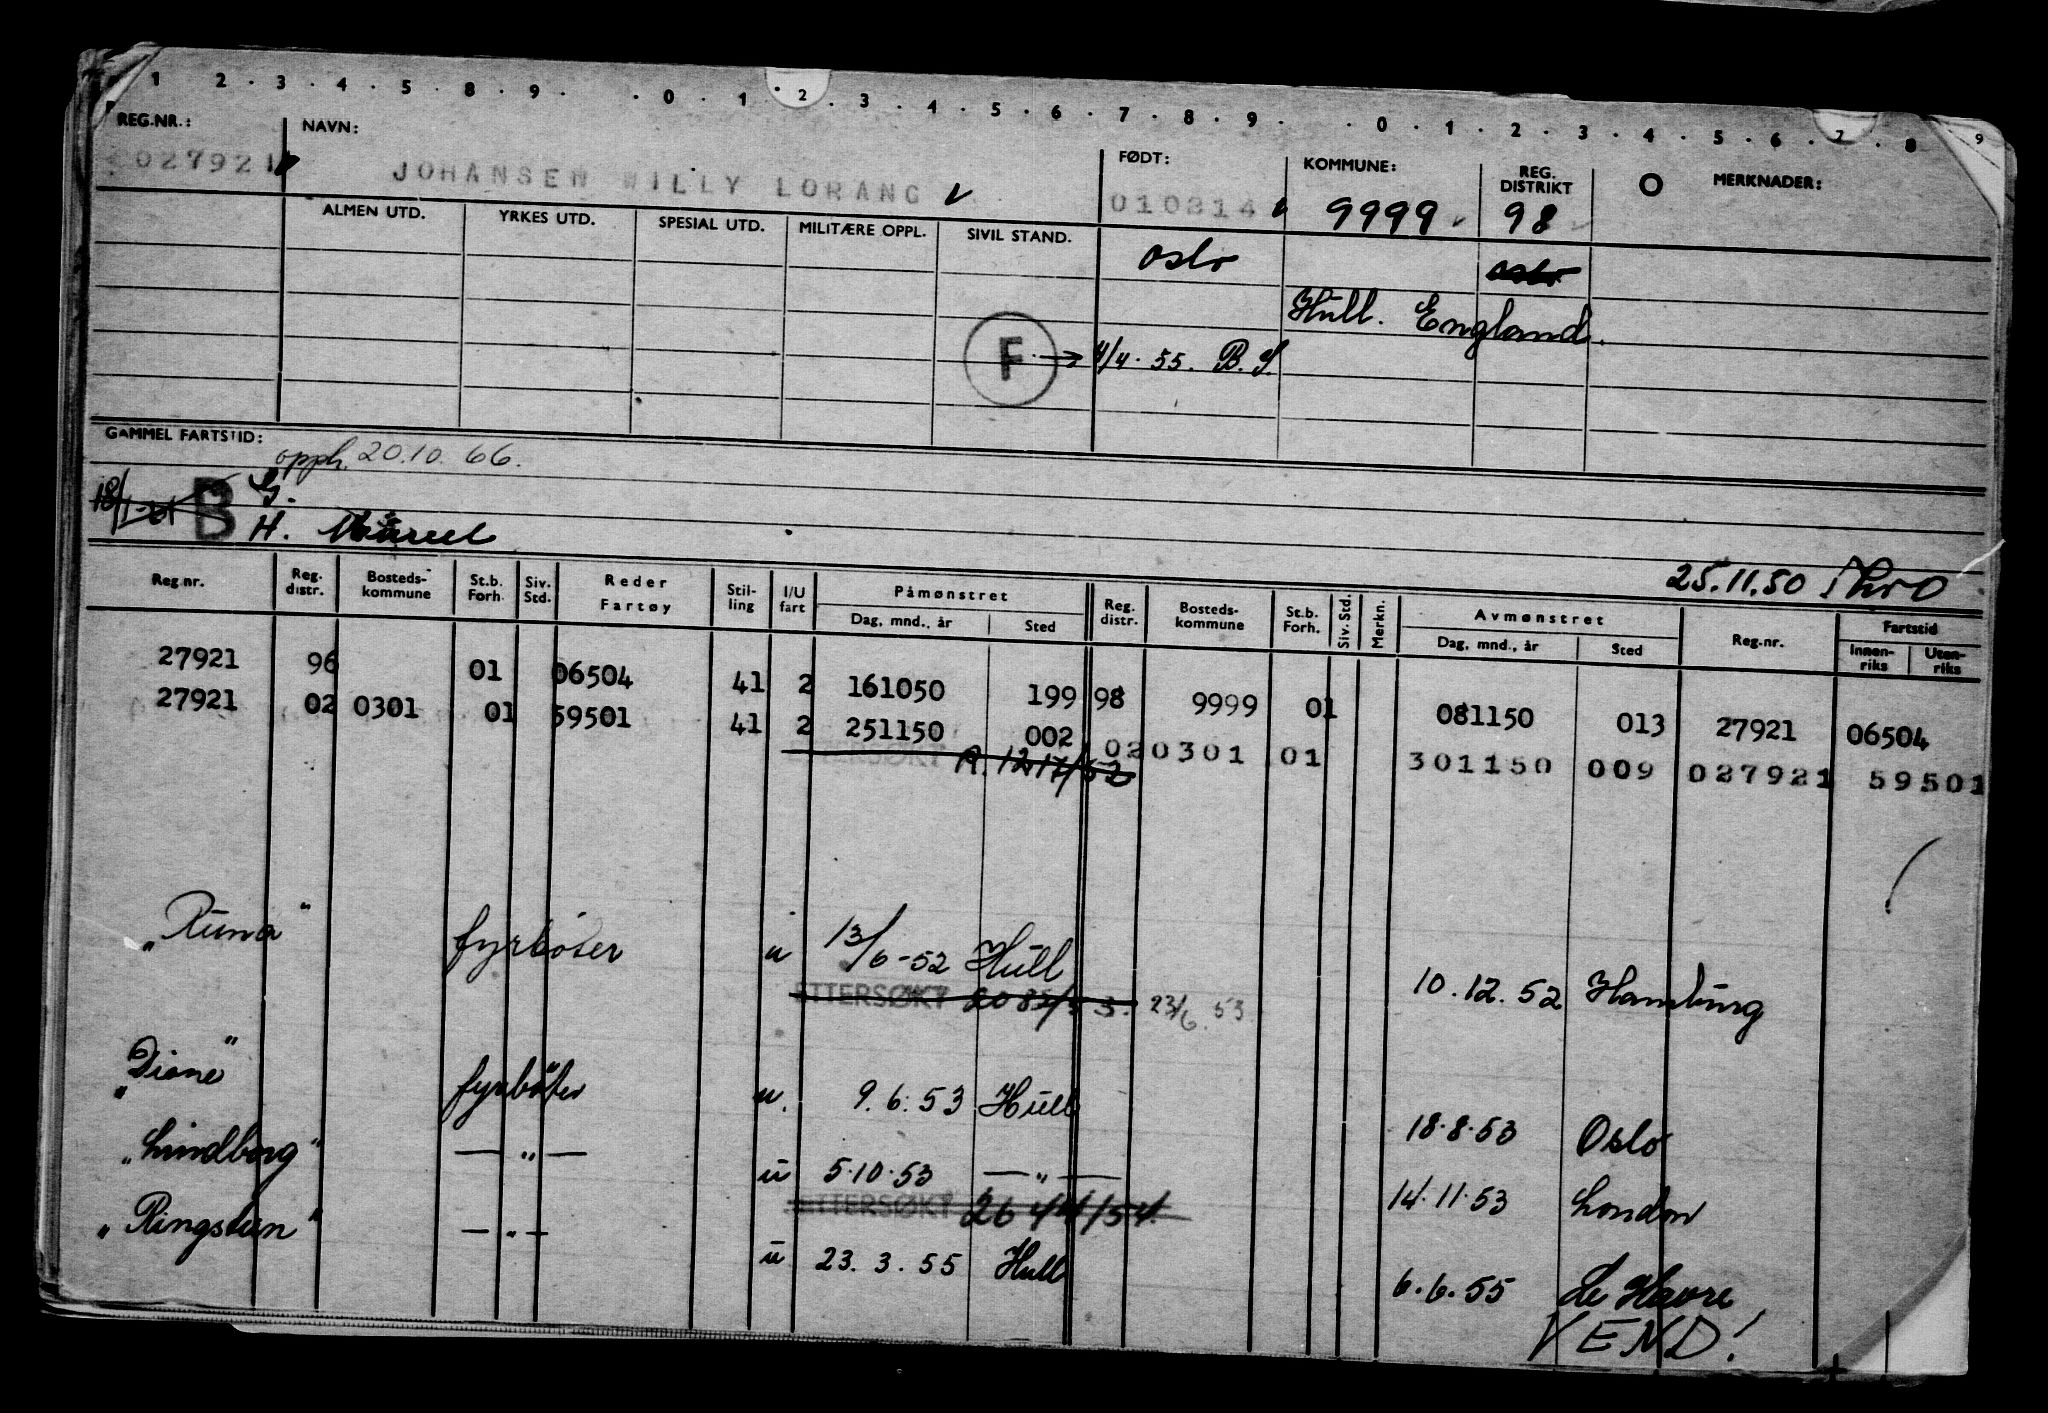 1 2 . 3 . 4 . 5 . 8 . 9 . . 0 . 1 . 2 . 3 . 4 . 5 . 6 . 7 . 8 . 9 . . 0 . 1 . 2 . 3 . 4 . 5 . 6 . 7 . 8 9
REG.NR.: NAVN: FØDT: KOMMUNE: REG. DISTRIKT O MERKNADER:
027921 JOHANSEN WILLY LORANG 010814 9999 98
ALMEN UTD. YRKES UTD. SPESIAL UTD. MILITÆRE OPPL. SIVIL STAND. Oslo Oslo
Hull. England.
F → 4/4. 55. B.S.
GAMMEL FARTSTID:
opph. 20.10.66.
B G.
H.
25.11.50
Reg.nr. Reg. distr. Bosteds-kommune St.b. Forh. Siv. Std. Reder Fartøy Stil-ling I/U fart Påmønstret Dag, mnd., år Sted Reg. distr. Bosteds-kommune St.b. Forh. Siv. Std. Merkn. Avmønstret Dag, mnd., år Sted Reg.nr. Fartstid Innen-riks Uten-riks
27921 96 01 06504 41 2 161050 199 98 9999 01 081150 013 27921 06504
27921 02 0301 01 59501 41 2 251150 002 02 0301 01 301150 009 027921 59501
ETTERSØKT A. 1217/52
"Runa" fyrbøter u 13/6-52 Hull 10.12.52 Hamburg
ETTERSØKT 2085/53. 23/6.53
"Diana" fyrbøter u. 9.6.53 Hull 18.8.53 Oslo
"Lindborg" — " — u 5.10.53 — " — 14.11.53 London
ETTERSØKT 2644/54.
"Ringstein" — " — u 23.3.55 Hull 6.6.55 Le Havre
VEND!